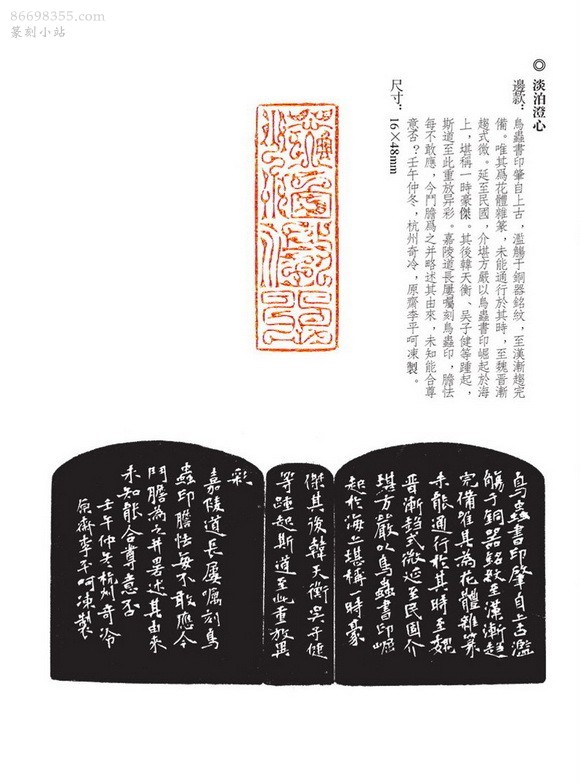 86698355.com
篆刻小站
◎ 淡泊澄心
邊款：鳥蟲書印肇自上古，濫觴于銅器銘紋，至漢漸趨完
備。唯其爲花體雜篆，未能通行於其時，至魏晋漸
趨式微。延至民國，介堪方嚴以鳥蟲書印崛起於海
上，堪稱一時豪傑。其後韓天衡、吴子健等踵起，
斯道至此重放异彩。嘉陵道長屢囑刻鳥蟲印，膽怯
每不敢應，今鬥膽爲之并略述其由來，未知能合尊
意否？壬午仲冬，杭州奇冷，原齊李平呵凍製。
尺寸：16×48mm
淡泊澄心
鳥蟲書印肇自上古濫
觴于銅器銘紋至漢漸趨
完備唯其為花體雜篆
未能通行於其時至魏
晋漸趋式微延至民國介
堪方嚴以鳥蟲書印崛
起於海上堪稱一時豪
傑其後韓天衡吴子健
等踵起斯道至此重放異
彩
嘉陵道長屢囑刻鳥
蟲印膽怯每不敢應今
鬥膽為之并畧述其由來
未知能合尊意否
壬午仲冬杭州奇冷
原齊李平呵凍製